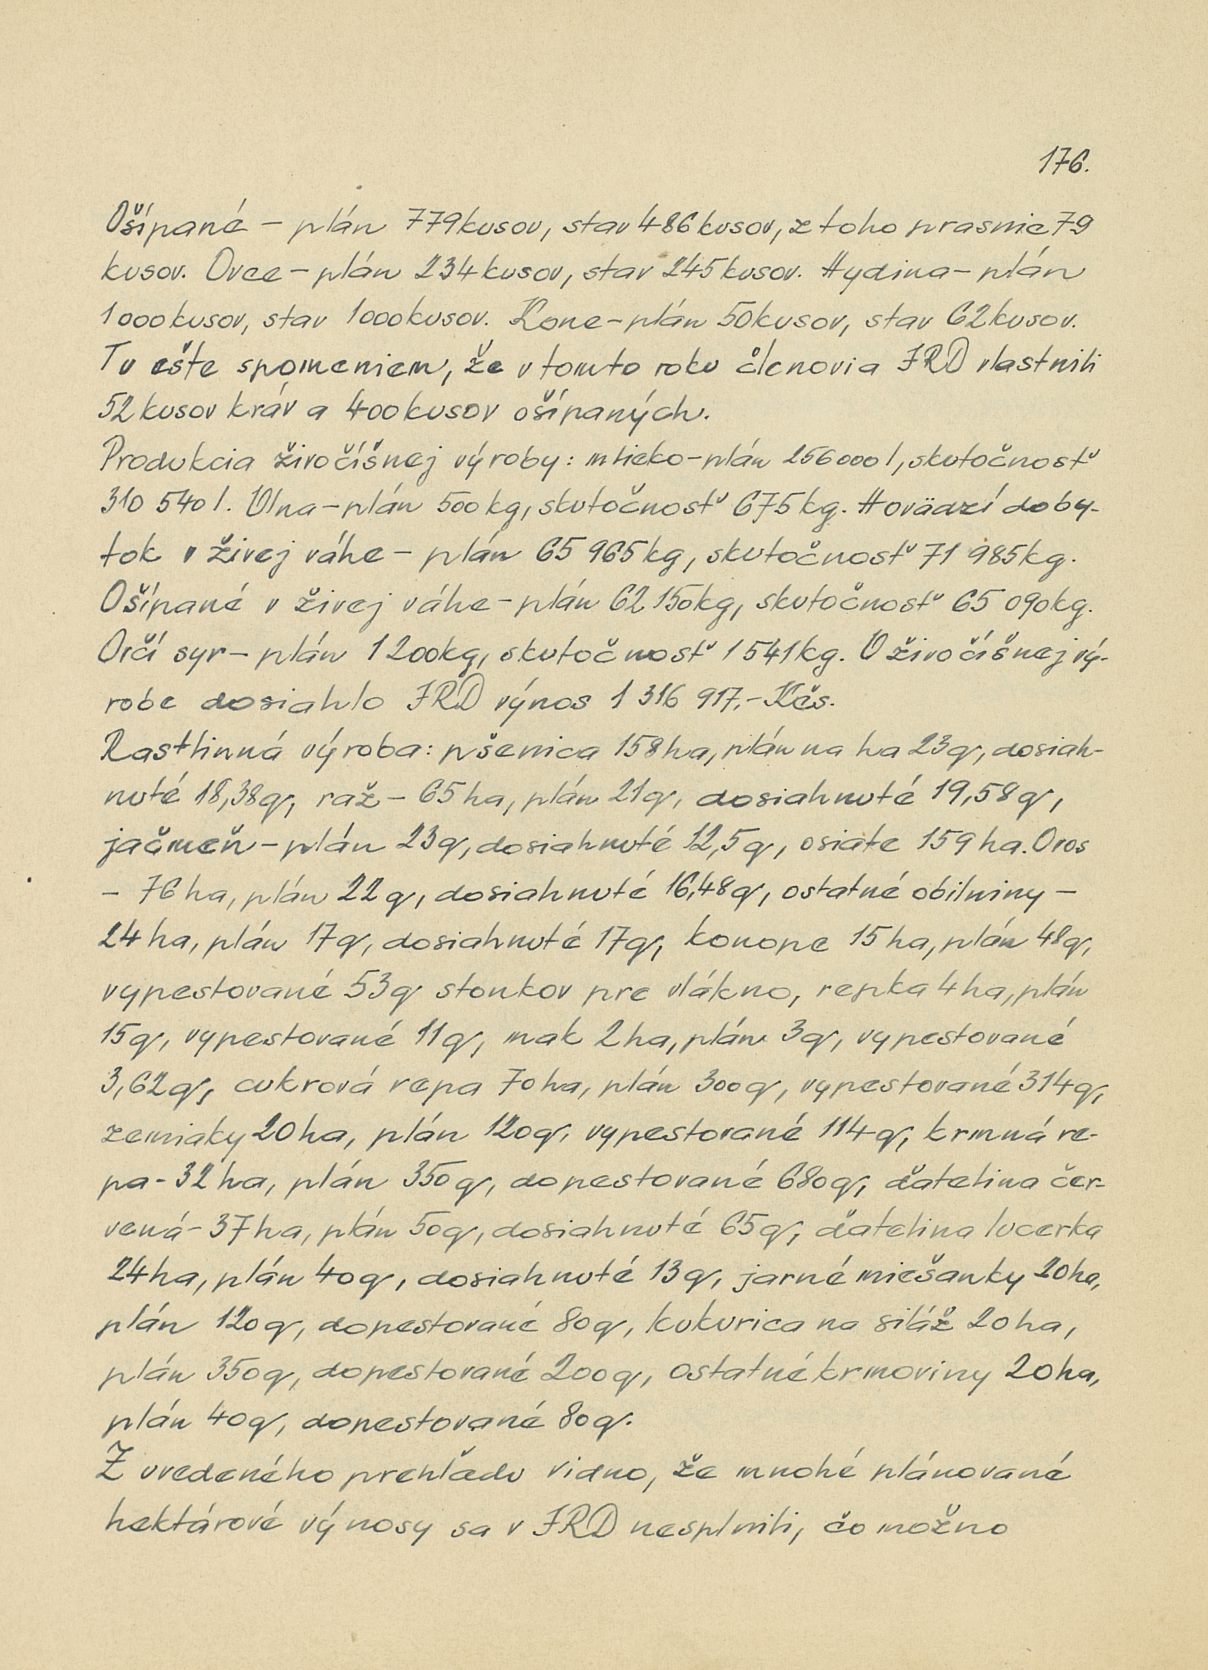 176.
Ošípané - plán 779 kusov, stav 486 kusov, z toho prasnie 79
kusov. Ovce - plán 234 kusov, stav 245 kusov. Hydina - plán
1000 kusov, stav 1000 kusov. Kone - plán 50 kusov, stav 62 kusov.
Tu ešte spomeniem, že v tomto roku členovia JRD vlastnili
52 kusov kráv a 400 kusov ošípaných.
Produkcia živočíšnej výroby: mlieko - plán 256 000 l, skutočnosť
310 540 l. Vlna - plán 500 kg, skutočnosť 675 kg. Hovädzí doby-
tok v živej váhe - plán 65 965 kg, skutočnosť 71 985 kg.
Ošípané v živej váhe - plán 62 150 kg, skutočnosť 65 090 kg.
Ovčí syr - plán 1 200 kg, skutočnosť 1 541 kg. V živočíšnej vý-
robe dosiahlo JRD výnos 1 316 917,- Kčs.
Rastlinná výroba: pšenica 158 ha, plán na ha 23 q, dosiah-
nuté 18,38 q, raž - 65 ha, plán 21 q, dosiahnuté 19,58 q,
jačmeň - plán 23 q, dosiahnuté 12,5 q, osiate 159 ha. Ovos
- 76 ha, plán 22 q, dosiahnuté 16,48 q, ostatné obilniny -
24 ha, plán 17 q, dosiahnuté 17 q, konope 15 ha, plán 48 q,
vypestované 53 q stonkov pre vlákno, repka 4 ha, plán
15 q, vypestované 11 q, mak 2 ha, plán 3 q, vypestované
3,62 q, cukrová repa 70 ha, plán 300 q, vypestované 314 q,
zemiaky 20 ha, plán 120 q, vypestované 114 q, krmná re-
pa - 32 ha, plán 350 q, dopestované 680 q, ďatelina čer-
vená - 37 ha, plán 50 q, dosiahnuté 65 q, ďatelina lucerka
24 ha, plán 40 q, dosiahnuté 13 q, jarné miešanky 20 ha,
plán 120 q, dopestované 80 q, kukurica na siláž 20 ha,
plán 350 q, dopestované 200 q, ostatné krmoviny 20 ha,
plán 40 q, dopestované 80 q.
Z uvedeného prehľadu vidno, že mnohé plánované
hektárové výnosy sa v JRD nesplnili, čo možno